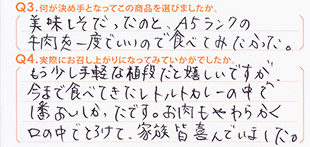 Q3.何が決め手となってこの商品を選びましたか。
美味しそだったのと、A5ランクの
牛肉を一度でいいので食べてみたかった。
Q4.実際にお召し上がりになってみていかがでしたか。
もう少し手軽な値段だと嬉しいですが、
今まで食べてきたレトルトカレーの中で
1番おいしかったです。お肉もやわらかく
口の中でとろけて、家族皆喜んでいました。